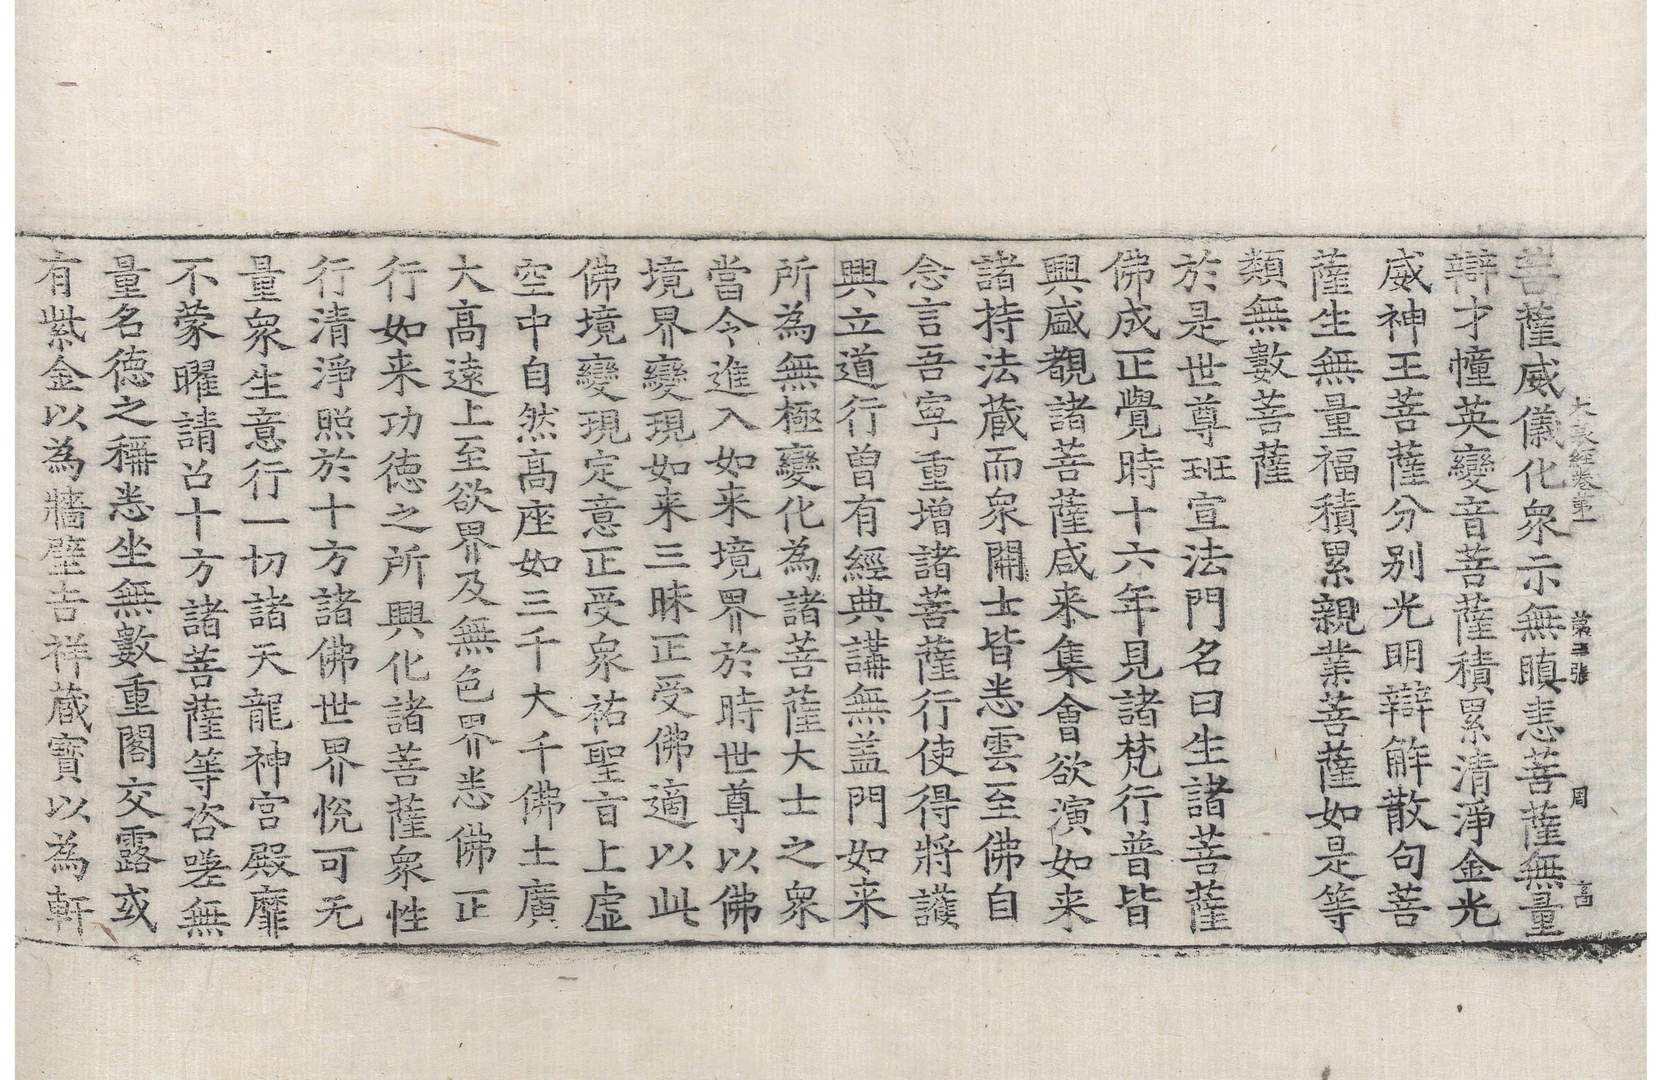 大哀經卷第一 第三張 周 言
菩薩威儀化衆示無瞋恚菩薩無量
辯才幢英變音菩薩積累清淨金光
威神王菩薩分別光明辯解散句菩
薩生無量福積累親業菩薩如是等
類無數菩薩
於是世尊班宣法門名曰生諸菩薩
佛成正覺時十六年見諸梵行普皆
興盛覩諸菩薩咸来集會欲演如来
諸持法蔵而衆開士皆悉雲至佛自
念言吾寧重增諸菩薩行使得將護
興立道行曾有經典講無盖門如来
所為無極變化為諸菩薩大士之衆
當令進入如来境界於時世尊以佛
境界變現如来三昧正受佛適以此
佛境變現定意正受衆祐聖旨上虛
空中自然高座如三千大千佛土廣
大高遠上至欲界及無色界悉佛正
行如来功德之所興化諸菩薩衆性
行清淨照於十方諸佛世界恱可无
量衆生意行一切諸天龍神宮殿靡
不蒙曜請召十方諸菩薩等咨嗟無
量名德之稱悉坐無數重閣交露或
有紫金以為牆壁吉祥蔵寶以為軒